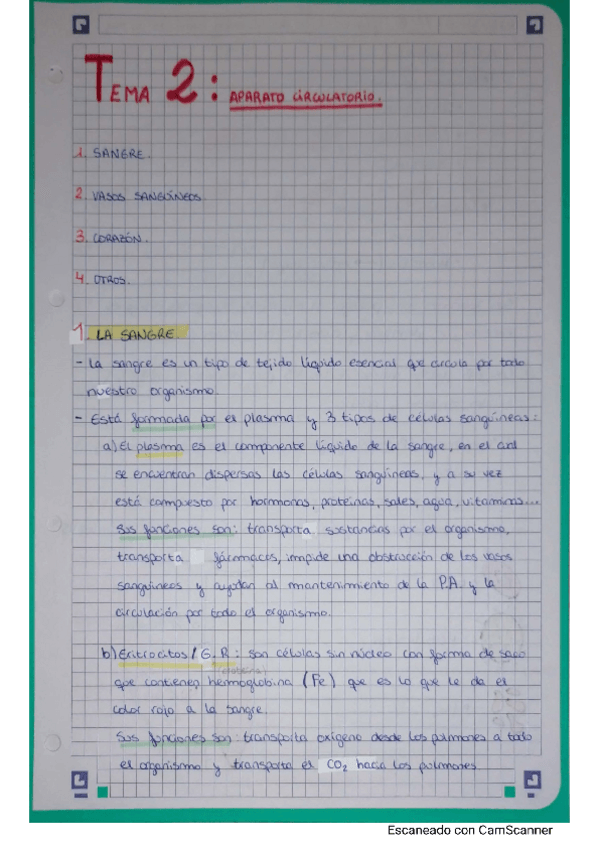 TEMA 2: APARATO CIRCULATORIO.
1. SANGRE.
2. VASOS SANGUÍNEOS
3. CORAZÓN.
4. OTROS.
1. LA SANGRE.
- La sangre es un tipo de tejido líquido esencial que circula por todo
nuestro organismo.
- Está formada por el plasma y 3 tipos de células sangúineas:
a) El plasma es el componente líquido de la sangre, en el cual
se encuentran dispersas las células sangúineas, y a su vez
está compuesto por hormonas, proteínas, sales, agua, vitaminas...
Sus funciones son: transporta sustancias por el organismo,
transporta fármacos, impide una obstrucción de los vasos
sanguíneos y ayudan al mantenimiento de la P.A. y la
circulación por todo el organismo.
b) Eritrocitos / G.R: son células sin núcleo con forma de saco
que contienen hemoglobina (Fe) que es lo que le da el
color rojo a la sangre.
Sus funciones son: transporta oxígeno desde los pulmones a todo
el organismo y transporta el CO2 hacia los pulmones.
Escaneado con CamScanner